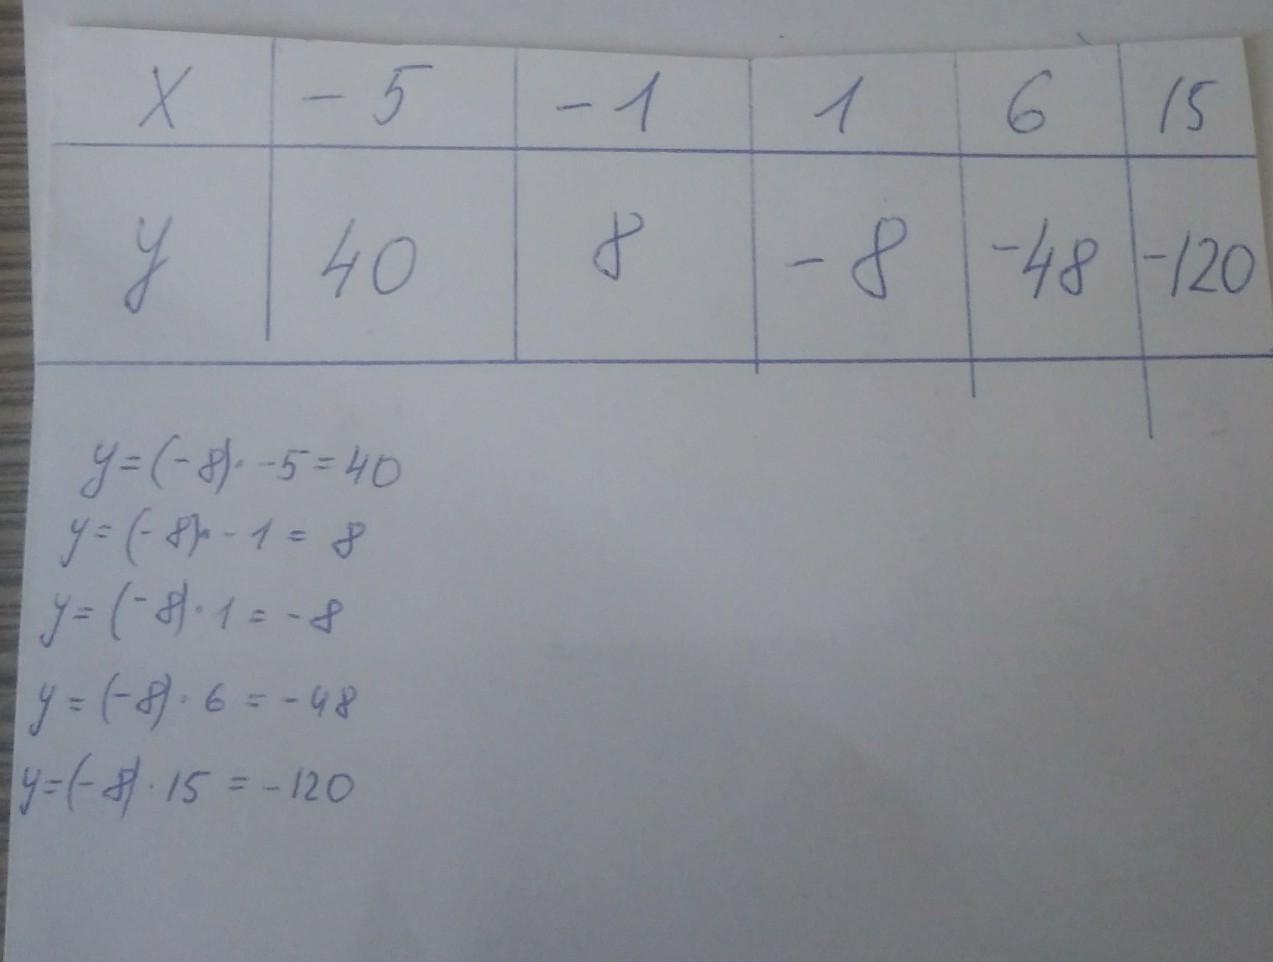 X - 5 - 1 1 6 15
y 40 8 - 8 -48 -120
y=(-8)· -5=40
y=(-8)· -1= 8
y=(-8)·1= -8
y=(-8)·6 = -48
y=(-8)·15 = -120